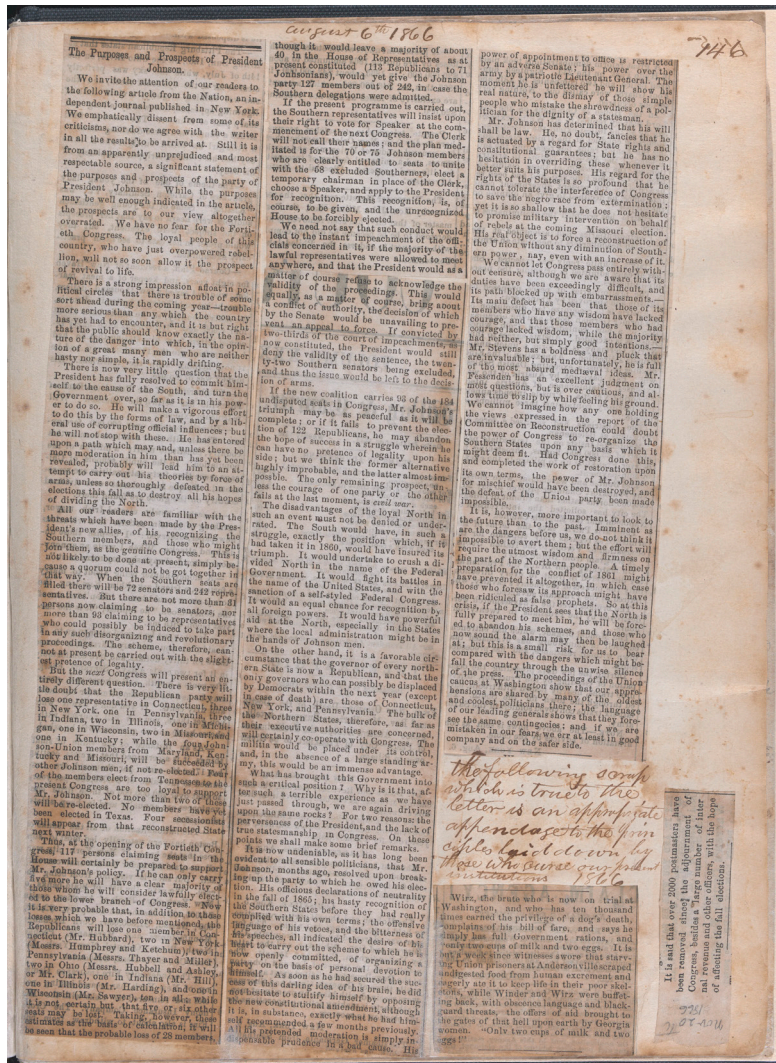 august 6th 1866
146
The Purposes and Prospects of President
Johnson.
We invite the attention of our readers to
the following article from the Nation, an in-
dependent journal published in New York.
We emphatically dissent from some of its
criticisms, nor do we agree with the writer
in all the results to be arrived at. Still it is
from an apparently unprejudiced and most
respectable source, a significant statement of
the purposes and prospects of the party of
President Johnson. While the purposes
may be well enough indicated in the article,
the prospects are to our view altogether
overrated. We have no fear for the Forti-
eth Congress. The loyal people of this
country, who have just overpowered rebel-
lion, will not so soon allow it the prospect
of revival to life.
There is a strong impression afloat in po-
litical circles that there is trouble of some
sort ahead during the coming year—trouble
more serious than any which the country
has yet had to encounter, and it is but right
that the public should know exactly the na-
ture of the danger into which, in the opin-
ion of a great many men who are neither
hasty nor simple, it is rapidly drifting.
There is now very little question that the
President has fully resolved to commit him-
self to the cause of the South, and turn the
Government over, so far as it is in his pow-
er to do so. He will make a vigorous effort
to do this by the forms of law, and by a lib-
eral use of corrupting official influences; but
he will not stop with these. He has entered
upon a path which may and, unless there be
more moderation in him than has yet been
revealed, probably will lead him to an at-
tempt to carry out his theories by force of
arms, unless so thoroughly defeated in the
elections this fall as to destroy all his hopes
of dividing the North.
All our readers are familiar with the
threats which have been made by the Pres-
ident's new allies, of his recognizing the
Southern members, and those who might
join them, as the genuine Congress. This is
not likely to be done at present, simply be-
cause a quorum could not be got together in
that way. When the Southern seats are
filled there will be 72 senators and 242 repre-
sentatives. But there are not more than 31
persons now claiming to be senators, nor
more than 93 claiming to be representatives
who could possibly be induced to take part
in any such disorganizing and revolutionary
proceedings. The scheme, therefore, can-
not at present be carried out with the slight-
est pretence of legality.
But the next Congress will present an en-
tirely different question. There is very lit-
tle doubt that the Republican party will
lose one representative in Connecticut, three
in New York, one in Pennsylvania, three
in Indiana, two in Illinois, one in Michi-
gan, one in Wisconsin, two in Missouri, and
one in Kentucky; while the four John-
son-Union members from Maryland, Ken-
tucky and Missouri, will be succeeded by
other Johnson men, if not re-elected. Four
of the members elect from Tennessee to the
present Congress are too loyal to support
Mr. Johnson. Not more than two of these
will be re-elected. No members have yet
been elected in Texas. Four secessionists
will appear from that reconstructed State
next winter.
Thus, at the opening of the Fortieth Con-
gress, 117 persons claiming seats in the
House will certainly be prepared to support
Mr. Johnson's policy. If he can only carry
five more he will have a clear majority of
those whom he will consider lawfully elect-
ed to the lower branch of Congress. Now
it is very probable that, in addition to those
losses which we have before mentioned, the
Republicans will lose one member in Con-
necticut (Mr. Hubbard), two in New York
(Messrs. Humphrey and Ketchum), two in
Pennsylvania (Messrs. Thayer and Miller),
two in Ohio (Messrs. Hubbell and Ashley,
or Mr. Clark), one in Indiana (Mr. Hill),
one in Illinois (Mr. Harding), and one in
Wisconsin (Mr. Sawyer), ten in all; while
it is not certain but that five or six other
seats may be lost. Taking, however, these
estimates as the basis of calculation, it will
be seen that the probable loss of 28 members,
though it would leave a majority of about
40 in the House of Representatives as at
present constituted (113 Republicans to 71
Johnsonians), would yet give the Johnson
party 127 members out of 242, in case the
Southern delegations were admitted.
If the present programme is carried out,
the Southern representatives will insist upon
their right to vote for Speaker at the com-
mencement of the next Congress. The Clerk
will not call their names; and the plan med-
itated is for the 70 or 75 Johnson members
who are clearly entitled to seats to unite
with the 58 excluded Southerners, elect a
temporary chairman in place of the Clerk,
choose a Speaker, and apply to the President
for recognition. This recognition is, of
course, to be given, and the unrecognized
House to be forcibly ejected.
We need not say that such conduct would
lead to the instant impeachment of the offi-
cials concerned in it, if the majority of the
lawful representatives were allowed to meet
anywhere, and that the President would as a
matter of course refuse to acknowledge the
validity of the proceedings. This would
equally, as a matter of course, bring about
a conflict of authority, the decision of which
by the Senate would be unavailing to pre-
vent an appeal to force. If convicted by
two-thirds of the court of impeachments, as
now constituted, the President would still
deny the validity of the sentence, the twen-
ty-two Southern senators being excluded,
and thus the issue would be left to the decis-
ion of arms.
If the new coalition carries 93 of the 184
undisputed seats in Congress, Mr. Johnson's
triumph may be as peaceful as it will be
complete; or if it fails to prevent the elec-
tion of 122 Republicans, he may abandon
the hope of success in a struggle wherein he
can have no pretence of legality upon his
side; but we think the former alternative
highly improbable, and the latter almost im-
possible. The only remaining prospect, un-
less the courage of one party or the other
fails at the last moment, is civil war.
The disadvantages of the loyal North in
such an event must not be denied or under-
rated. The South would have, in such a
struggle, exactly the position which, if it
had taken it in 1860, would have insured its
triumph. It would undertake to crush a di-
vided North in the name of the Federal
Government. It would fight its battles in
the name of the United States, and with the
sanction of a self-styled Federal Congress.
It would an equal chance for recognition by
all foreign powers. It would have powerful
aid at the North, especially in the States
where the local administration might be in
the hands of Johnson men.
On the other hand, it is a favorable cir-
cumstance that the governor of every north-
ern State is now a Republican, and that the
only governors who can possibly be displaced
by Democrats within the next year (except
in case of death) are those of Connecticut,
New York, and Pennsylvania. The bulk of
the Northern States, therefore, as far as
their executive authorities are concerned,
will certainly co-operate with Congress. The
militia would be placed under its control,
and, in the absence of a large standing ar-
my, this would be an immense advantage.
What has brought this Government into
such a critical position? Why is it that, af-
ter such a terrible experience as we have
just passed through, we are again driving
upon the same rocks? For two reasons: the
perverseness of the President, and the lack of
true statesmanship in Congress. On these
points we shall make some brief remarks.
It is now undeniable, as it has long been
evident to all sensible politicians, that Mr.
Johnson, months ago, resolved upon break-
ing up the party to which he owed his elec-
tion. His officious declarations of neutrality
in the fall of 1865; his hasty recognition of
the Southern States before they had really
complied with his own terms; the offensive
language of his vetoes, and the bitterness of
his speeches, all indicated the desire of his
heart to carry out the scheme to which he is
now openly committed, of organizing a
party on the basis of personal devotion to
himself. As soon as he had secured the suc-
cess of this darling idea of his brain, he did
not hesitate to stultify himself by opposing
the new constitutional amendment, although
it is, in substance, exactly what he had him-
self recommended a few months previously.
All his pretended moderation is simply in-
dispensable prudence in a bad cause. His
power of appointment to office is restricted
by an adverse Senate; his power over the
army by a patriotic Lieutenant General. The
moment he is unfettered he will show his
real nature, to the dismay of those simple
people who mistake the shrewdness of a pol-
itician for the dignity of a statesman.
Mr. Johnson has determined that his will
shall be law. He, no doubt, fancies that he
is actuated by a regard for State rights and
constitutional guarantees; but he has no
hesitation in overriding these whenever it
better suits his purposes. His regard for the
rights of the States is so profound that he
cannot tolerate the interference of Congress
to save the negro race from extermination;
yet it is so shallow that he does not hesitate
to promise military intervention on behalf
of rebels at the coming Missouri election.
His real object is to force a reconstruction of
the Union without any diminution of South-
ern power, nay, even with an increase of it.
We cannot let Congress pass entirely with-
out censure, although we are aware that its
duties have been exceedingly difficult, and
its path blocked up with embarrassments.—
Its main defect has been that those of its
members who have any wisdom have lacked
courage, and that those members who had
courage lacked wisdom, while the majority
had neither, but simply good intentions.—
Mr. Stevens has a boldness and pluck that
are invaluable; but, unfortunately, he is full
of the most absurd mediæval ideas. Mr.
Fessenden has an excellent judgment on
most questions, but is over cautious, and al-
lows time to slip by while feeling his ground.
We cannot imagine how any one holding
the views expressed in the report of the
Committee on Reconstruction could doubt
the power of Congress to re-organize the
Southern States upon any basis which it
might deem fit. Had Congress done this,
and completed the work of restoration upon
its own terms, the power of Mr. Johnson
for mischief would have been destroyed, and
the defeat of the Union party been made
impossible.
It is, however, more important to look to
the future than to the past. Imminent as
are the dangers before us, we do not think it
impossible to avert them; but the effort will
require the utmost wisdom and firmness on
the part of the Northern people. A timely
preparation for the conflict of 1861 might
have prevented it altogether, in which case
those who foresaw its approach might have
been ridiculed as false prophets. So at this
crisis, if the President sees that the North is
fully prepared to meet him, he will be forc-
ed to abandon his schemes, and those who
now sound the alarm may then be laughed
at; but this is a small risk for us to bear
compared with the dangers which might be-
fall the country through the unwise silence
of the press. The proceedings of the Union
caucus at Washington show that our appre-
hensions are shared by many of the oldest
and coolest politicians there; the language
of our leading generals shows that they fore-
see the same contingencies; and if we are
mistaken in our fears we err at least in good
company and on the safer side.
the following scrap
which is true to the
letter is an appropriate
appendage to the prin
ciples laid down by
those who curse our present
institutions 1866
Wirz, the brute who is now on trial at
Washington, and who has ten thousand
times earned the privilege of a dog's death,
complains of his bill of fare, and says he
simply has full Government rations, and
only two cups of milk and two eggs. It is
but a week since witnesses swore that starv-
ing Union prisoners at Andersonville scraped
undigested food from human excrement and
eagerly ate it to keep life in their poor skel-
etons, while Winder and Wirz were buffet-
ing back, with obscene language and black-
guard threats, the offers of aid brought to
the gates of that hell upon earth by Georgia
women. "Only two cups of milk and two
eggs!"
It is said that over 2000 postmasters have
been removed since the adjournment of
Congress, besides a large number of inter
nal revenue and other officers, with the hope
of affecting the fall elections.
Nov 20
1866